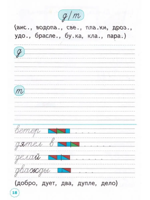 д/т
(вис., водопа., све., пла.ки, дроз.,
удо., брасле., бу.ка, кла., пара.)
д
т
ветер
дятел в
делай
дважды
(добро, дует, два, дупле, дело)